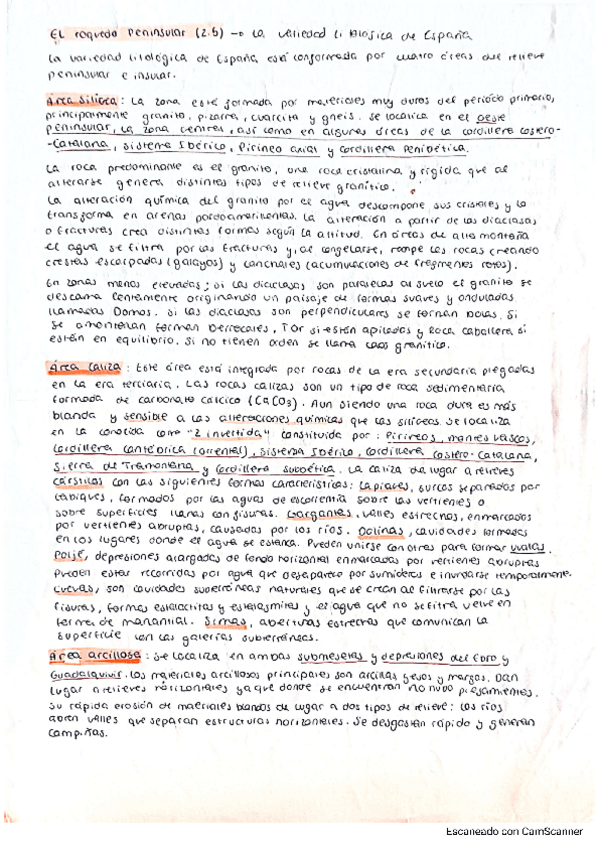 El roquedo peninsular (2.b) → La variedad litológica de España
La variedad litológica de España está conformada por cuatro áreas del relieve
peninsular e insular.
Área Silícea: La zona esté formada por materiales muy duros del período primario,
principalmente granito, pizarra, cuarcita y gneis. Se localiza en el oeste
peninsular, la zona centres, así como en algunas áreas de la cordillera costero-
-Catalana, sistema Ibérico, Pirineo axial y Cordillera Penibética.
La roca predominante es el granito, una roca cristalina y rígida que al
alterarse genera distintos tipos de relieve granítico.
La alteración química del granito por el agua descompone sus cristales y lo
transforma en arenas pardoamarillentas. La alteración a partir de las diaclasas
o fracturas crea distintas formas según la altitud. En áreas de alta montaña
el agua se filtra por las fracturas y, al congelarse, rompe las rocas creando
crestas escarpadas (galayos) y canchales (acumulaciones de fragmentos rotos).
En zonas menos elevadas; si las diaclasas son paralelas al suelo el granito se
descama lentamente originando un paisaje de formas suaves y onduladas
llamadas Domos. Si las diaclasas son perpendiculares se forman bolas. Si
se amontonan forman berrocales, Tor si están apiladas y Roca caballera si
están en equilibrio. Si no tienen orden se llama caos granítico.
Área Caliza: Este área está integrada por rocas de la era secundaria plegadas
en la era terciaria. Las rocas calizas son un tipo de roca sedimentaria
formada de carbonato cálcico (CaCO3). Aun siendo una roca dura es más
blanda y sensible a las alteraciones químicas que las silíceas. Se localiza
en la conocida como "Z invertida" constituida por: Pirineos, montes vascos,
cordillera cantábrica (oriental), sistema Ibérico, Cordillera costero-Catalana,
Sierra de Tramontana y Cordillera subbética. La caliza da lugar a relieves
cársticos con las siguientes formas características: Lapiaces, surcos separados por
tabiques, formados por las aguas de escorrentía sobre las vertientes o
sobre superficies llanas con fisuras. Gargantas, valles estrechos, enmarcados
por vertientes abruptas, causados por los ríos. Dolinas, cavidades formadas
en los lugares donde el agua se estanca. Pueden unirse con otras para formar uvalas.
Polje, depresiones alargadas de fondo horizontal enmarcadas por vertientes abruptas
Pueden estar recorridas por agua que desaparece por sumideros e inundarse temporalmente.
Cuevas, son cavidades subterráneas naturales que se crean al filtrarse por las
fisuras, formas estalactitas y estalagmitas y el agua que no se filtra vuelve en
forma de manantial. Simas, aberturas estrechas que comunican la
superficie con las galerías subterráneas.
Área arcillosa: Se localiza en ambas submesetas y depresiones del Ebro y
Guadalquivir. Los materiales arcillosos principales son arcillas yesos y margas. Dan
lugar a relieves horizontales ya que donde se encuentran no hubo plegamientos.
Su rápida erosión de materiales blandos da lugar a dos tipos de relieve: Los ríos
abren valles que separan estructuras horizontales. Se desgastan rápido y generan
campiñas.
Escaneado con CamScanner